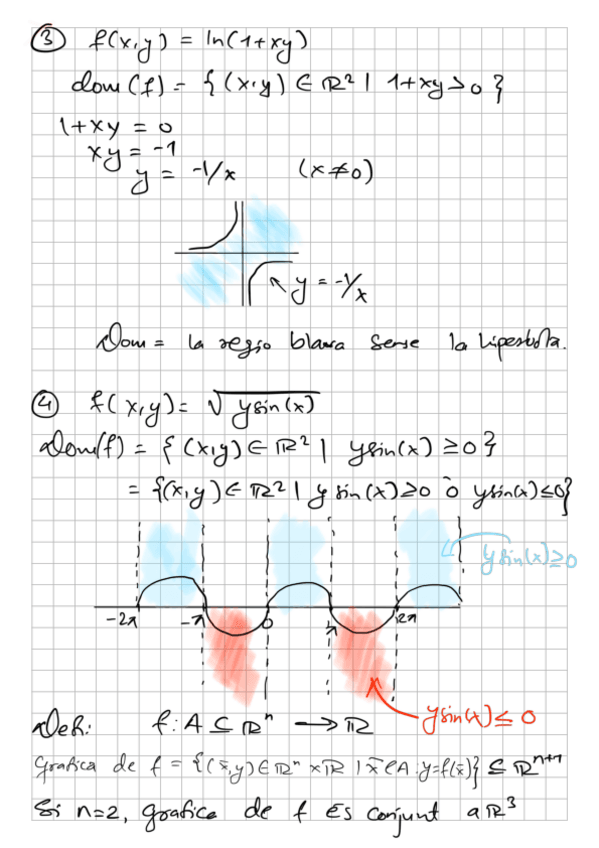 ③ f(x,y) = ln(1+xy)
dom(f) = { (x,y) ∈ ℝ² | 1+xy>0 }
1+xy = 0
xy = -1
y = -1/x (x≠0)
y = -1/x
Dom = la regio blava sense la hiperbola.
④ f(x,y) = √ysin(x)
Dom(f) = { (x,y) ∈ ℝ² | ysin(x) ≥0 }
= {(x,y) ∈ ℝ² | y sin(x) ≥0 ò ysin(x) ≤0}
ysin(x)≥0
-2π -π 0 π 2π
ysin(x) ≤ 0
Def: f: A ⊆ ℝⁿ → ℝ
Grafica de f = {(x̄,y) ∈ ℝⁿ × ℝ | x̄ ∈ A : y=f(x̄)} ⊆ ℝⁿ⁺¹
Si n=2, grafica de f és conjunt a ℝ³